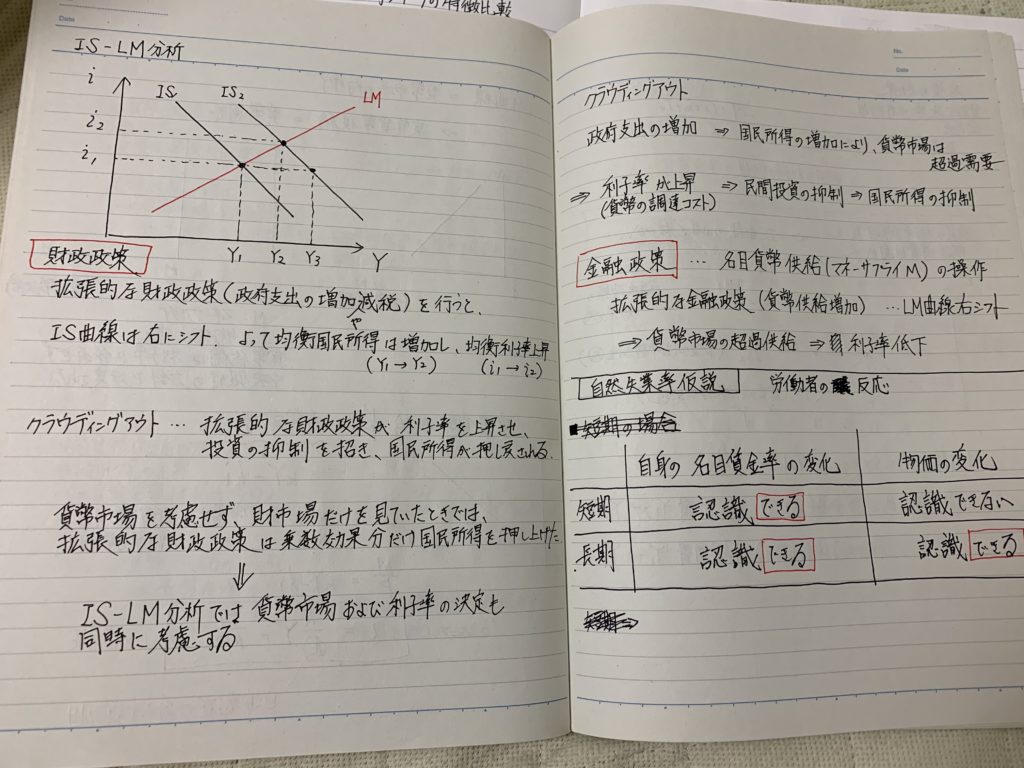 の特徴比較
Date
IS-LM分析
i
IS
IS2
LM
i2
i1
Y1 Y2 Y3 Y
財政政策
拡張的な財政政策(政府支出の増加や減税)を行うと、
IS曲線は右にシフト. よって均衡国民所得は増加し、均衡利子率上昇
(Y1→Y2) (i1→i2)
クラウディングアウト … 拡張的な財政政策が利子率を上昇させ、
投資の抑制を招き、国民所得が押し戻される.
貨幣市場を考慮せず、財市場だけを見ていたときでは、
拡張的な財政政策は乗数効果分だけ国民所得を押し上げた
⇓
IS-LM分析では貨幣市場および利子率の決定も
同時に考慮する
No.
Date
クラウディングアウト
政府支出の増加 ⇒ 国民所得の増加により、貨幣市場は
超過需要
⇒ 利子率が上昇 ⇒ 民間投資の抑制 ⇒ 国民所得の抑制
(貨幣の調達コスト)
金融政策 … 名目貨幣供給(マネーサプライM)の操作
拡張的な金融政策(貨幣供給増加) …LM曲線右シフト
⇒ 貨幣市場の超過供給 ⇒ 利子率低下
自然失業率仮説 労働者の反応
短期の場合
自身の名目賃金率の変化 物価の変化
短期 認識できる 認識できない
長期 認識できる 認識できる
短期⇒